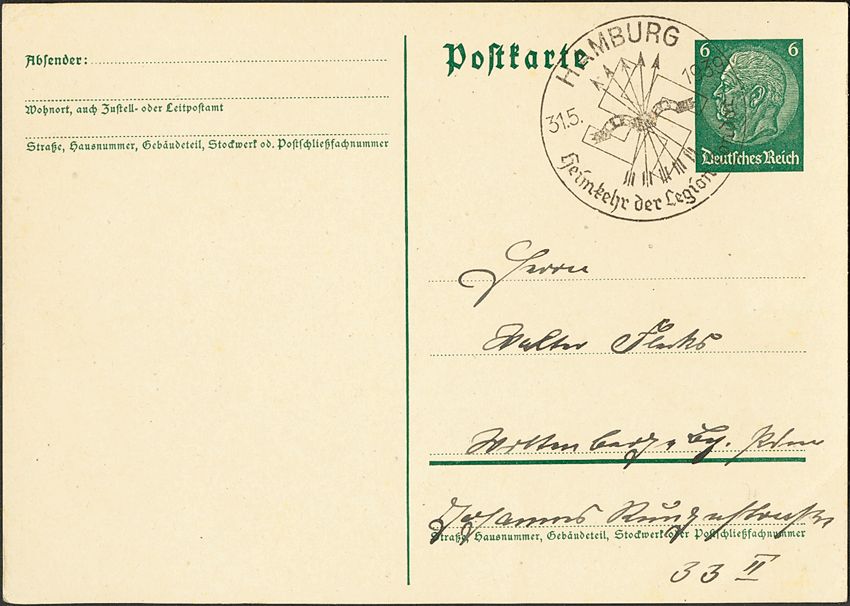 Absender:
Wohnort, auch Zustell- oder Leitpostamt
Straße, Hausnummer, Gebäudeteil, Stockwerk od. Postschließfachnummer
Postkarte
HAMBURG
31.5. 1939
Heimkehr der Legion
6 6
Deutsches Reich
Herrn
Walter
Johannes
Straße, Hausnummer, Gebäudeteil, Stockwerk oder Postschließfachnummer
33 II